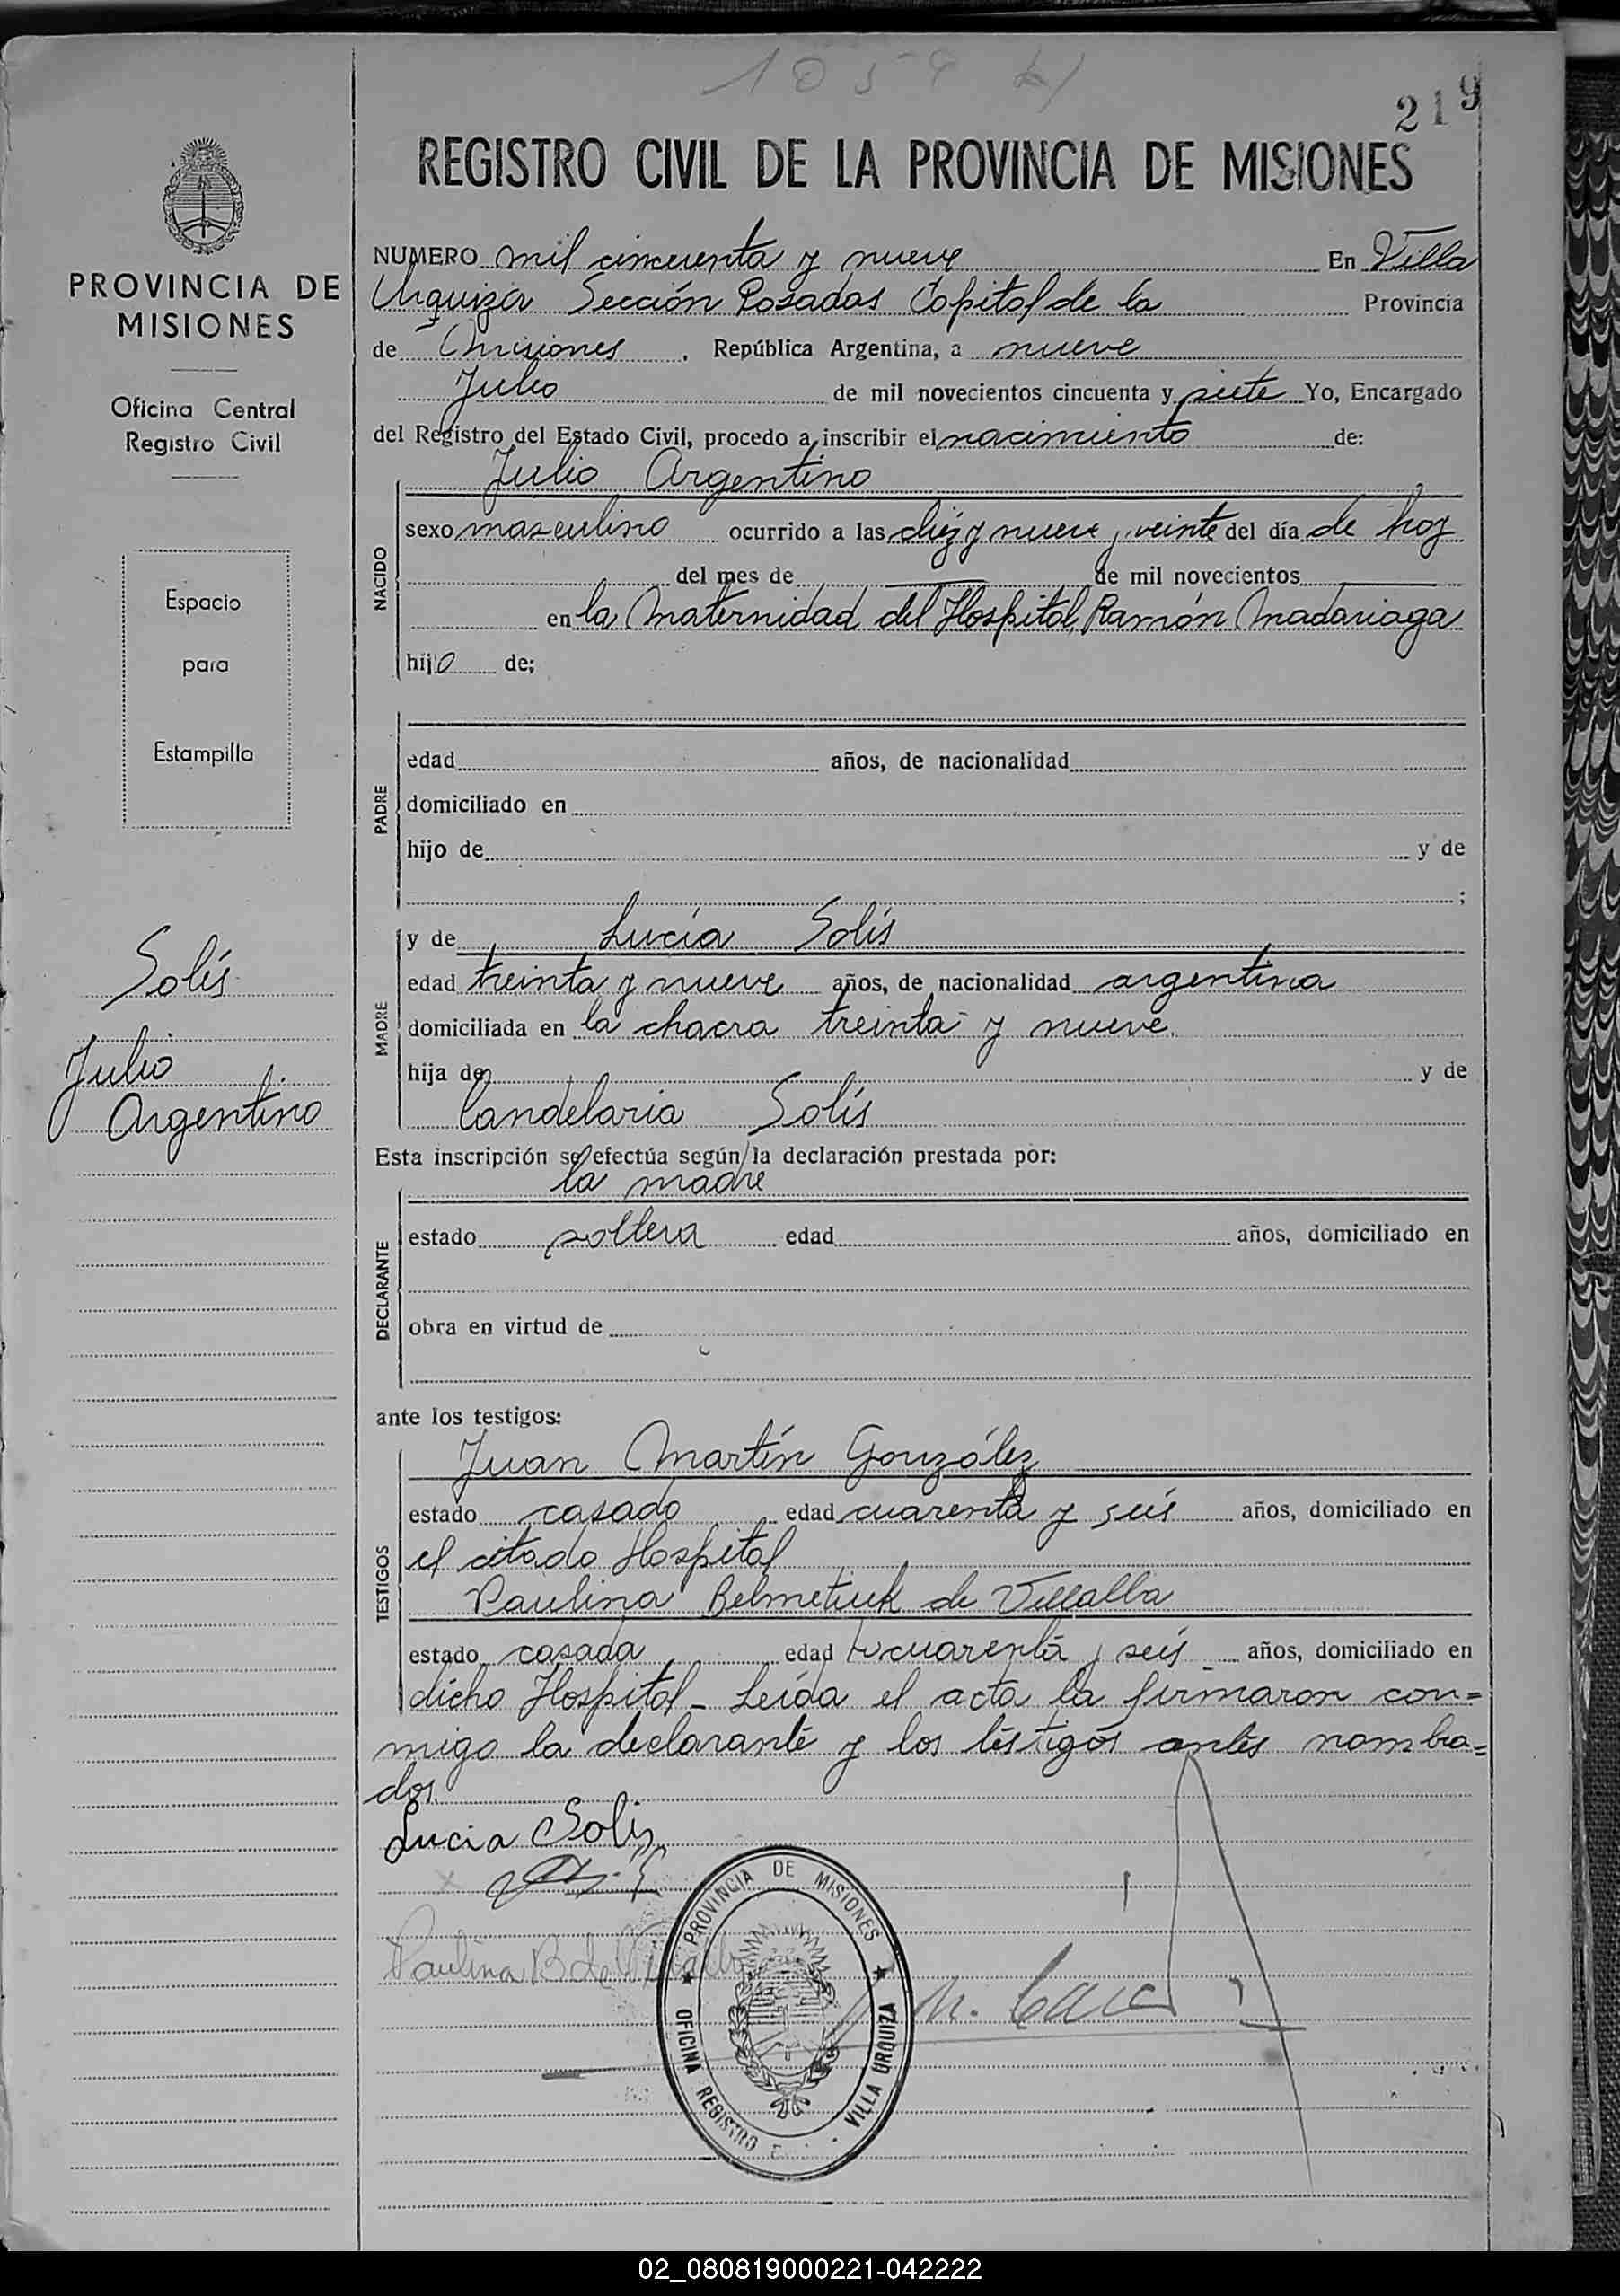 1059
219
REGISTRO CIVIL DE LA PROVINCIA DE MISIONES
PROVINCIA DE
MISIONES
Oficina Central
Registro Civil
Espacio
para
Estampilla
Solís
Julio
Argentino
NUMERO mil cincuenta y nueve En Villa
Urquiza Sección Posadas Capital de la Provincia
de Misiones, República Argentina, a nueve
Julio de mil novecientos cincuenta y siete Yo, Encargado
del Registro del Estado Civil, procedo a inscribir el nacimiento de:
NACIDO
Julio Argentino
sexo masculino ocurrido a las diez y nueve y veinte del día de hoy
del mes de de mil novecientos
en la Maternidad del Hospital Ramón Madariaga
hijo de;
PADRE
edad años, de nacionalidad
domiciliado en
hijo de y de
;
MADRE
y de Lucía Solís
edad treinta y nueve años, de nacionalidad argentina
domiciliada en la chacra treinta y nueve.
hija de y de
Candelaria Solís
Esta inscripción se efectúa según la declaración prestada por:
DECLARANTE
la madre
estado soltera edad años, domiciliado en
obra en virtud de
ante los testigos:
TESTIGOS
Juan Martín González
estado casado edad cuarenta y seis años, domiciliado en
el citado Hospital
Paulina Belmetiuk de Villalba
estado casada edad cuarenta y seis años, domiciliado en
dicho Hospital - Leída el acta la firmaron con=
migo la declarante y los testigos antes nombra=
dos.
Lucia Solis
Paulina B de Villalba
PROVINCIA DE MISIONES
OFICINA REGISTRO VILLA URQUIZA
02_080819000221-042222